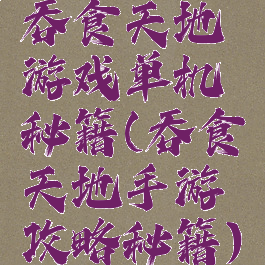 吞食天地
游戏单机
秘籍(吞食
天地手游
攻略秘籍)